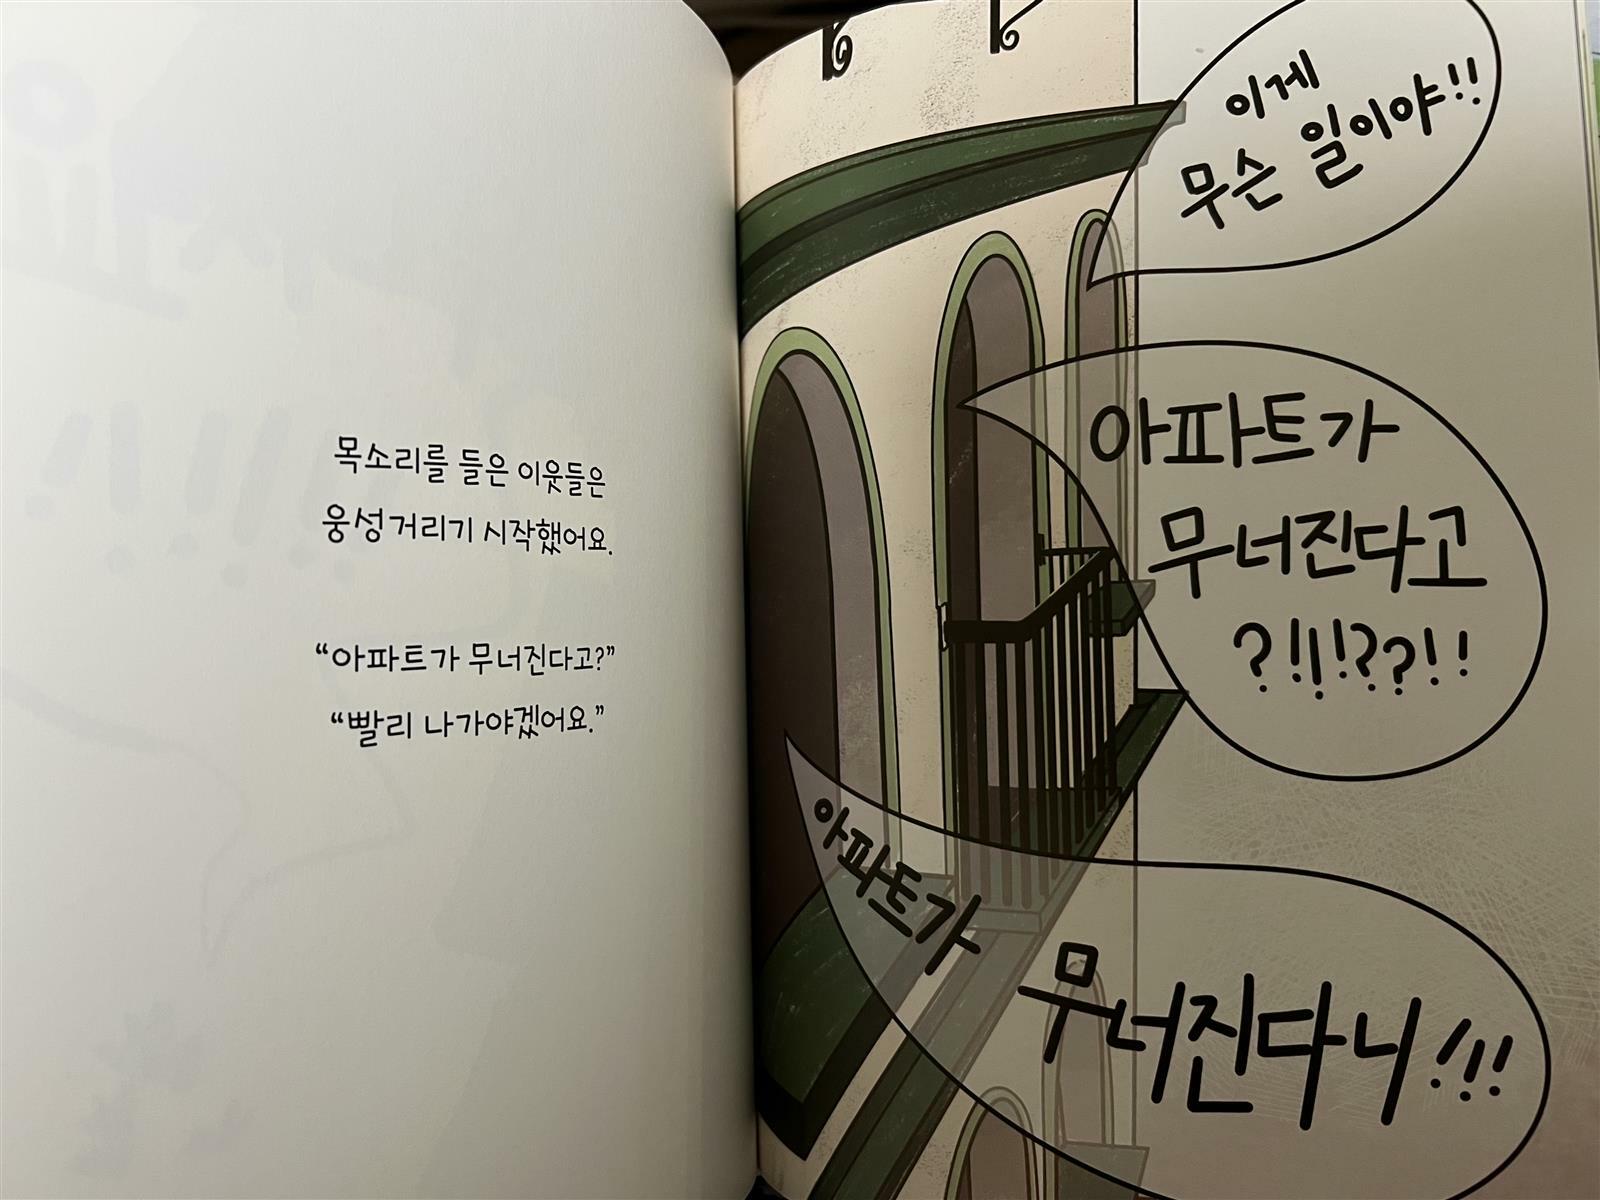 목소리를 들은 이웃들은
웅성거리기 시작했어요.
“아파트가 무너진다고?”
“빨리 나가야겠어요.”
이게
무슨 일이야!!
아파트가
무너진다고
?!!!??!!
아파트가
무너진다니!!!